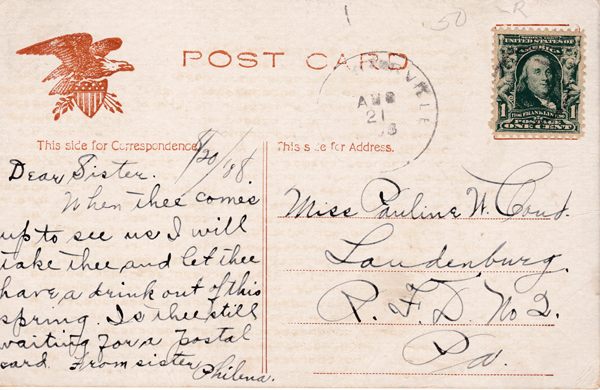 50
POST CARD
UNITED STATES OF
AMERICA
1 BENJ. FRANKLIN 1
POSTAGE
ONE CENT
VILLE
AUG
21
This side for Correspondence
This side for Address.
8/20/08.
Dear Sister.
When thee comes
up to see us I will
take thee and let thee
have a drink out of this
spring. Is thee still
waiting for a postal
card. From sister
Philena.
Miss Pauline W. Cond.
Landenburg.
R. F. D. No 2.
Pa.